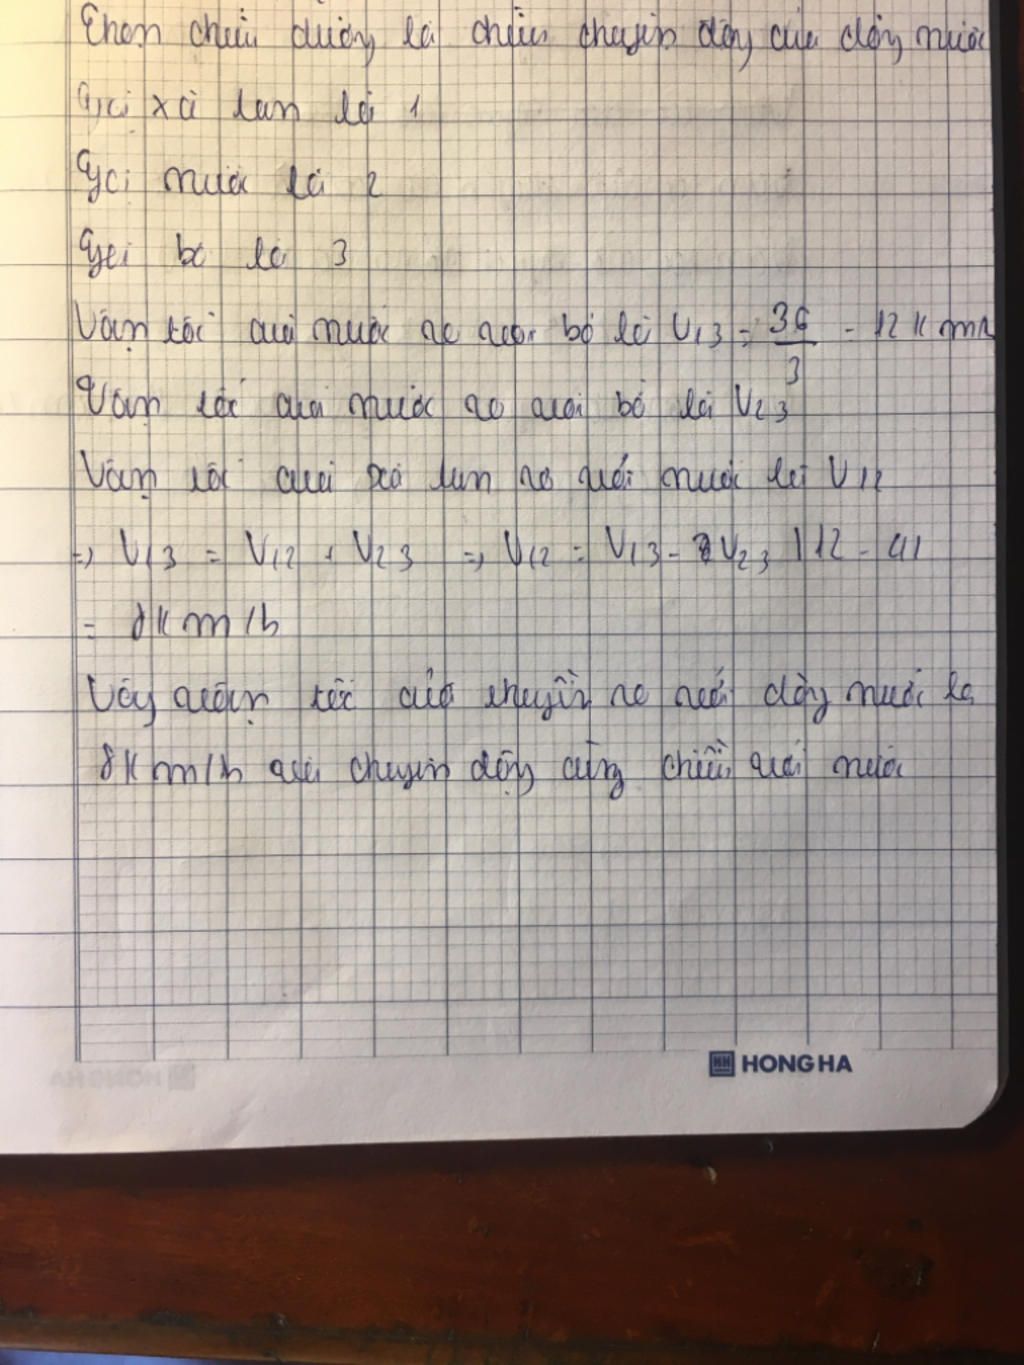 Chọn chiều dương là chiều chuyển động của dòng nước
Gọi xà lan là 1
Gọi nước là 2
Gọi bờ là 3
Vận tốc của nước so với bờ là V13 = 36/3 = 12 km/h
Vận tốc của nước so với bờ là V23
Vận tốc của xà lan so với nước là V12
=> V13 = V12 + V23 => V12 = V13 - V23 | 12 - 4|
= 8 Km/h
Vậy vận tốc của thuyền so với dòng nước là
8 Km/h và chuyển động cùng chiều với nước
HONG HA